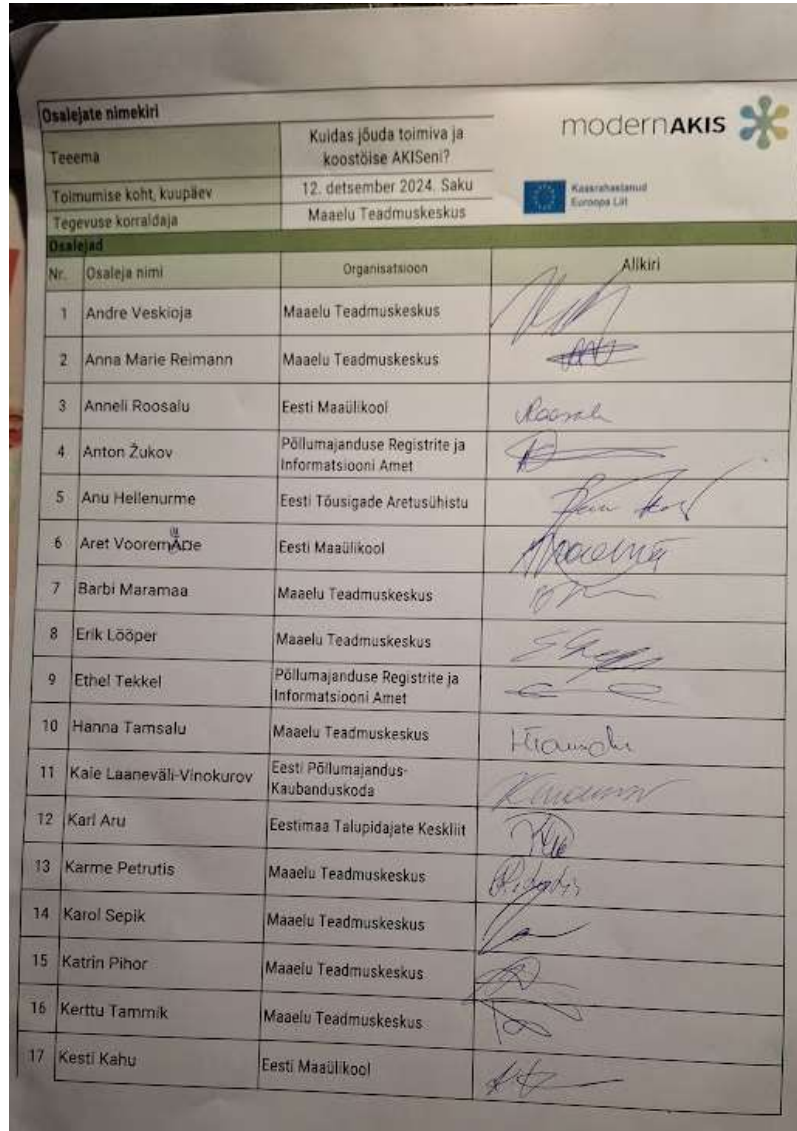 Osalejate nimekiri
modernAKIS
Teeema
Kuidas jõuda toimiva ja
koostöise AKISeni?
Toimumise koht, kuupäev
12. detsember 2024. Saku
Kaasrahastanud
Euroopa Liit
Tegevuse korraldaja
Maaelu Teadmuskeskus
Osalejad
Nr. Osaleja nimi Organisatsioon Alikiri
1 Andre Veskioja Maaelu Teadmuskeskus
2 Anna Marie Reimann Maaelu Teadmuskeskus
3 Anneli Roosalu Eesti Maaülikool
4 Anton Žukov Põllumajanduse Registrite ja
Informatsiooni Amet
5 Anu Hellenurme Eesti Tõusigade Aretusühistu
6 Aret Vooremäe Eesti Maaülikool
7 Barbi Maramaa Maaelu Teadmuskeskus
8 Erik Lööper Maaelu Teadmuskeskus
9 Ethel Tekkel Põllumajanduse Registrite ja
Informatsiooni Amet
10 Hanna Tamsalu Maaelu Teadmuskeskus
11 Kaie Laaneväli-Vinokurov Eesti Põllumajandus-
Kaubanduskoda
12 Karl Aru Eestimaa Talupidajate Keskliit
13 Karme Petrutis Maaelu Teadmuskeskus
14 Karol Sepik Maaelu Teadmuskeskus
15 Katrin Pihor Maaelu Teadmuskeskus
16 Kerttu Tammik Maaelu Teadmuskeskus
17 Kesti Kahu Eesti Maaülikool